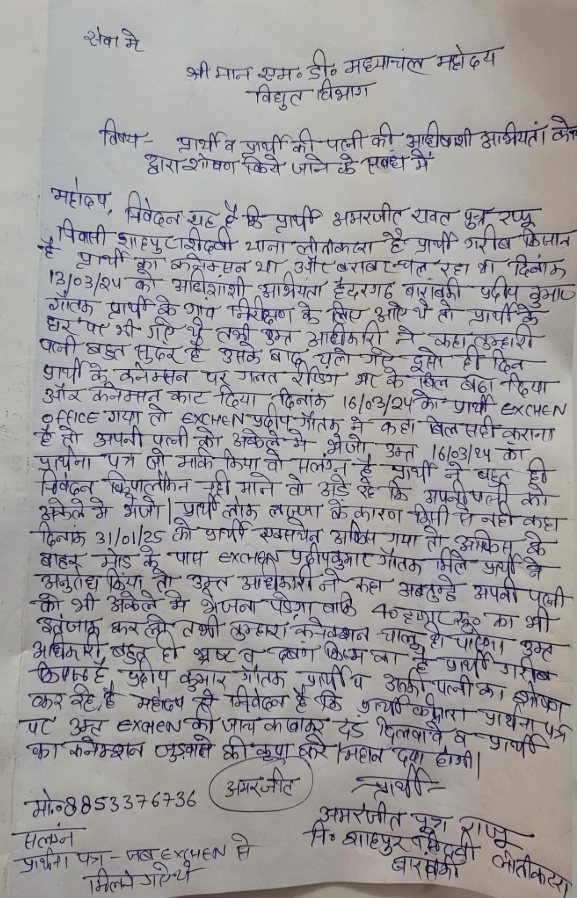 सेवा मे
श्री मान एम॰ डी॰ मध्याचंल महोदय
विद्युत विभाग
विषय - प्रार्थी व प्रार्थी की पत्नी की अधिशाशी अभियंता
द्वारा शोषण किये जाने के सबंध में
महोदय,
निवेदन यह है कि प्रार्थी अमरजीत रावत पुत्र रप्पू
निवासी शाहपुर थाना लोनीकटरा है प्रार्थी गरीब किसान
है प्रार्थी का कनेक्सन था और बराबर चल रहा था दिनांक
13/03/24 को अधिशाशी अभियंता हैदरगढ़ बाराबंकी प्रदीप कुमार
गौतम प्रार्थी के गांव निरीक्षण के लिए आये थे तो प्रार्थी के
घर पर भी गए थे तभी उक्त अधिकारी ने कहा तुम्हारी
पत्नी बहुत सुदंर है उसके बाद चले गए इसी ही दिन
प्रार्थी के कनेक्सन पर गलत रीडिंग भर के बिल बढ़ा दिया
और कनेक्सन काट दिया दिनांक 16/03/24 को प्रार्थी EXCHEN
OFFICE गया तो EXCHEN प्रदीप गौतम ने कहा बिल सही कराना
है तो अपनी पत्नी को अकेले मे भेजो उक्त 16/03/24 का
प्रार्थना पत्र जो मार्क किया वो सलंग्न है प्रार्थी ने बहुत ही
निवेदन किया लेकिन नही माने वो अड़े रहे कि अपनी पत्नी को
अकेले मे भेजो | प्रार्थी लोक लज्जा के कारण किसी से नही कहा
दिनांक 31/01/25 को प्रार्थी एक्सचेन आफिस गया तो आफिस के
बाहर मोड के पास EXCHEN प्रदीप कुमार गौतम मिले प्रार्थी ने
अनुरोध किया तो उक्त अधिकारी ने कहा अब तुम्हे अपनी पत्नी
को भी अकेले मे भेजना पडेगा बाकि 40 हजार रू० का भी
इतंजाम कर लो तभी तुम्हारा कनेक्शन चालू हो पाएगा उक्त
अधिकारी बहुत ही भ्रष्ट व दबंग किस्म का है प्रार्थी गरीब
किसान है, प्रदीप कुमार गौतम प्रार्थी व उसकी पत्नी का शोषण
कर रहे है महोदय से निवेदन है कि प्रार्थी के प्रार्थना पत्र
पर उक्त EXCHEN की जांच करवाकर दंड दिलवाये व प्रार्थी
का कनेक्शन जुड़वाने की कृपा करे | महान दया होगी |
अमरजीत
प्रार्थी
मो॰ 8853376736
अमरजीत पुत्र राप्पू
नि॰ शाहपुर लोनीकटरा
बाराबंकी
सलंग्न
प्रार्थना पत्र - जब EXCHEN से
मिलने गए थे